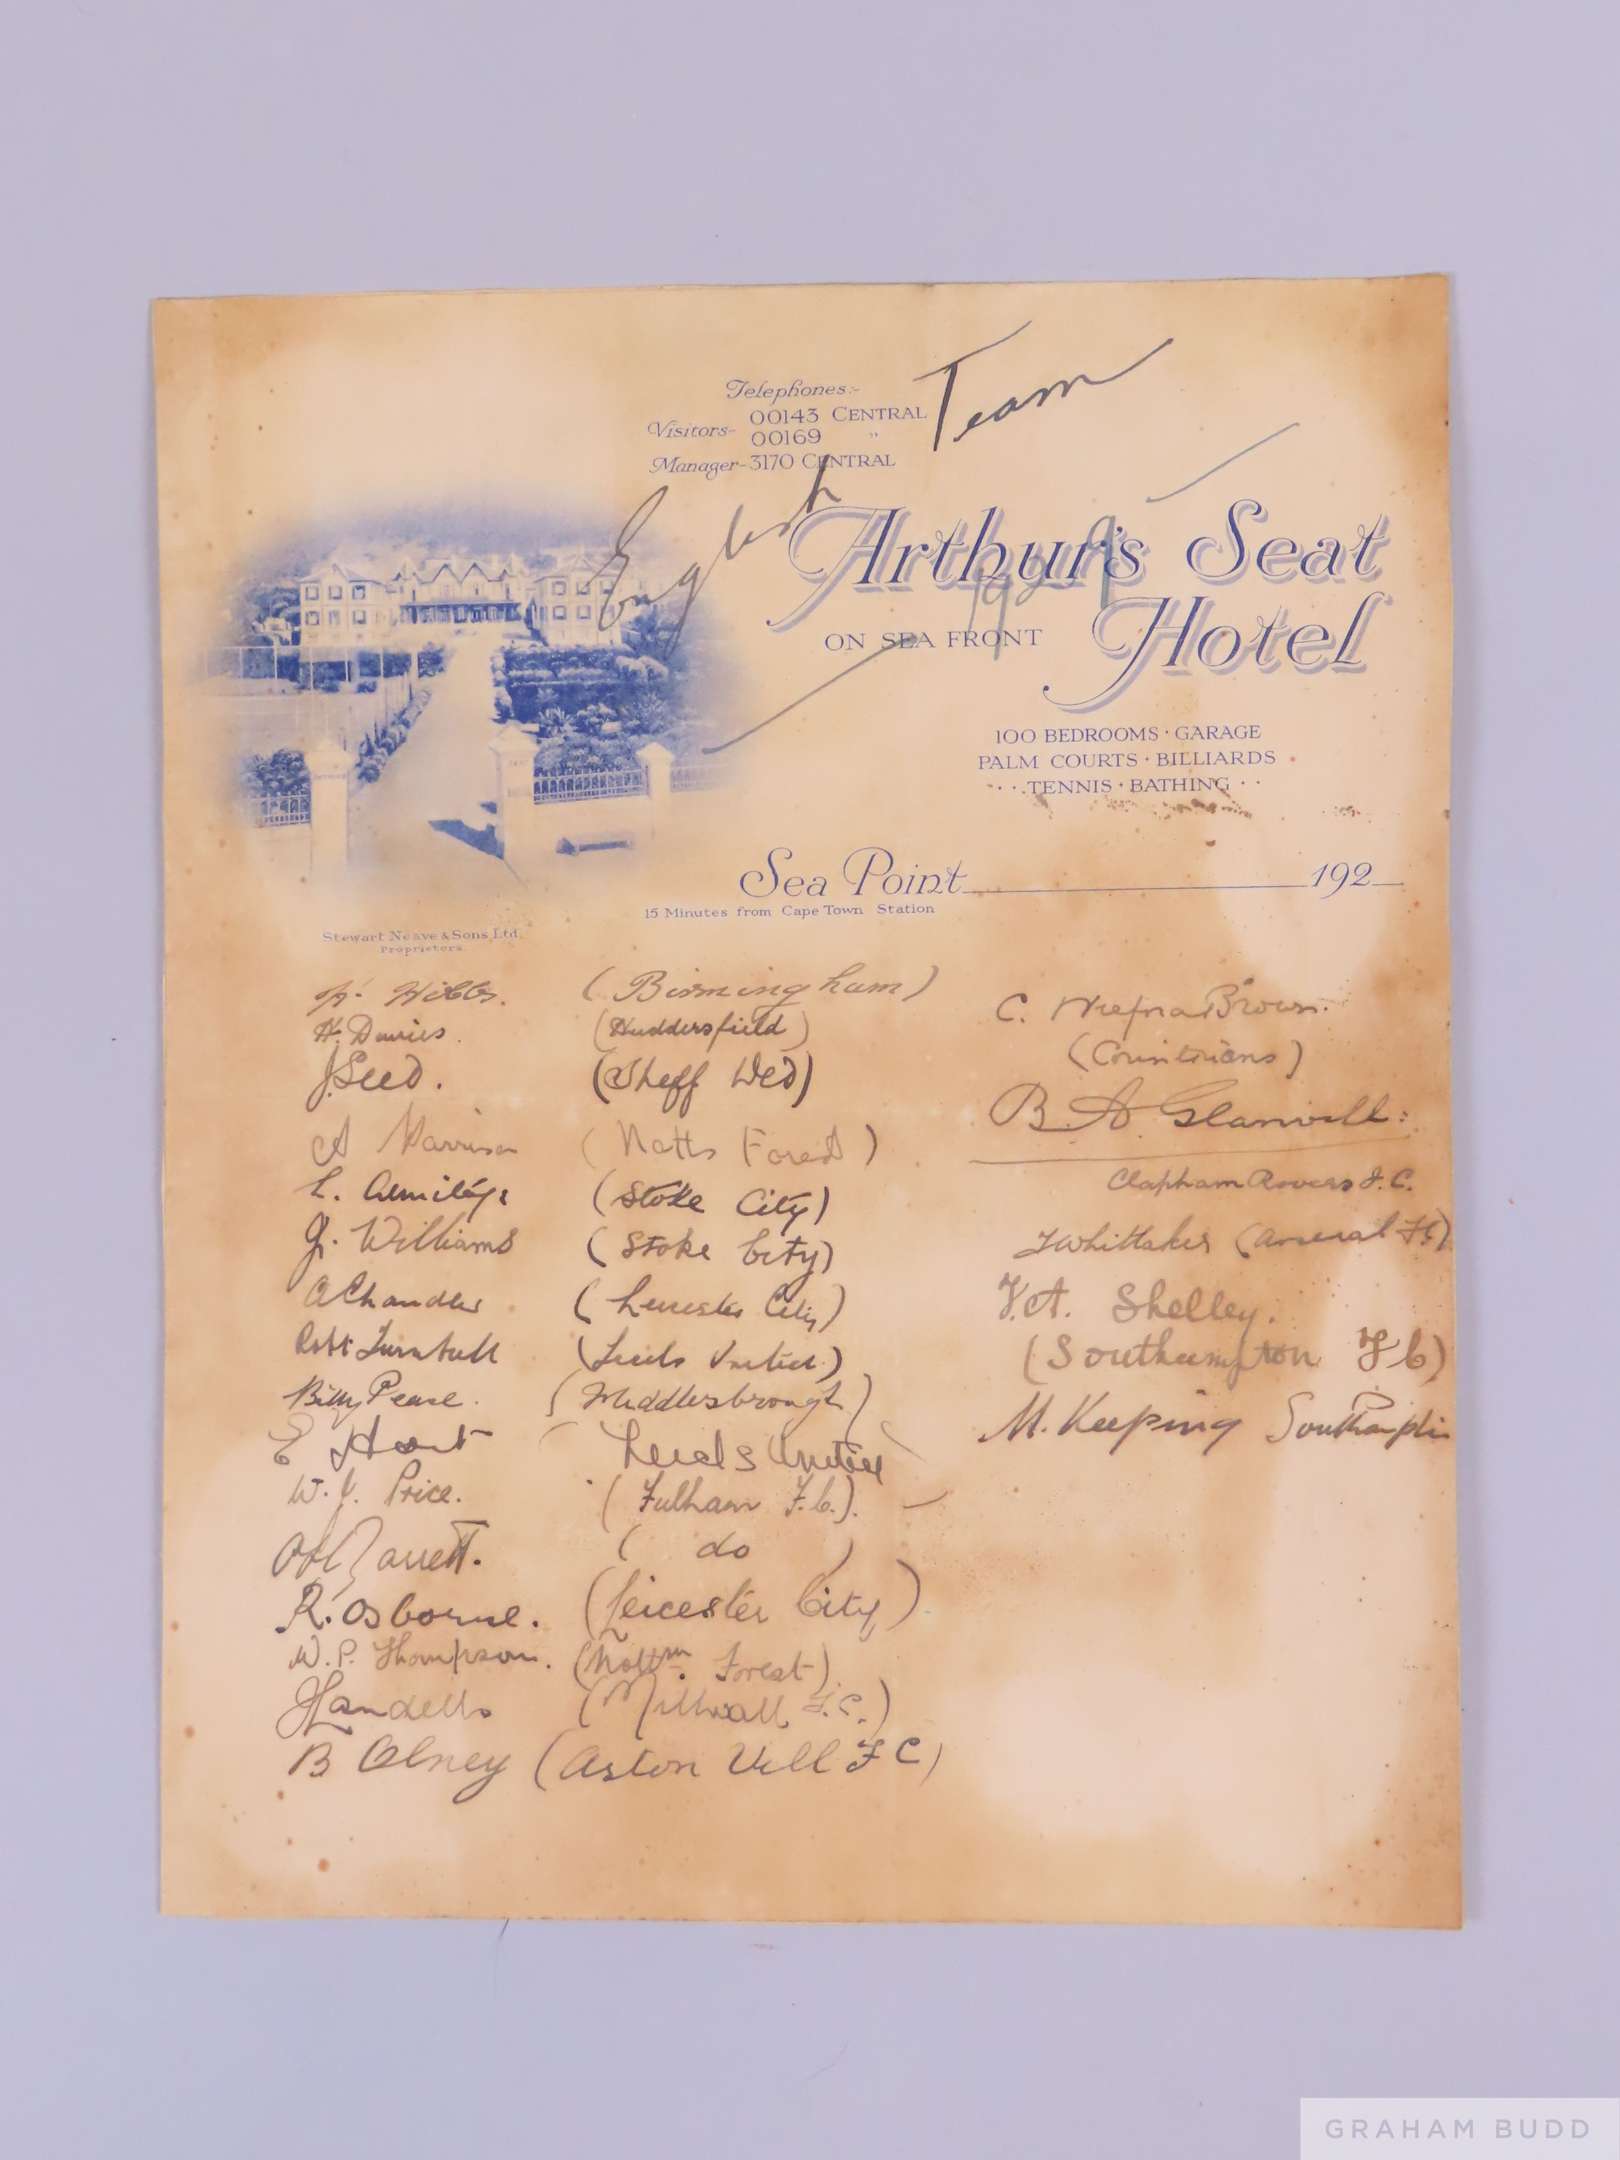 Telephones:-
Visitors- 00143 CENTRAL
00169 "
Manager- 3170 CENTRAL
English Team
1929
Arthur's Seat
Hotel
ON SEA FRONT
100 BEDROOMS · GARAGE
PALM COURTS · BILLIARDS
· · · TENNIS · BATHING · ·
Sea Point 192
15 Minutes from Cape Town Station
Stewart Neave & Sons Ltd.
Proprietors.
H. Hibbs. (Birmingham)
H. Davies. (Huddersfield)
J. Seed. (Sheff Wed)
A Harrison (Notts Forest)
L. Armitage (Stoke City)
J. Williams (Stoke City)
A Chandler (Leicester City)
Robt Turnbull (Leeds United)
Billy Pease. (Middlesbrough)
E Hart (Leeds United)
W. J. Price. (Fulham F.C.).
Barrett. (do)
R. Osborne. (Leicester City)
W. P. Thompson. (Nottm Forest)
J Landells (Millwall F.C.)
B Olney (Aston Vill F C)
C. Brown.
(Corinthians)
B. A. Glanvill:
Clapham Rovers F.C.
T Whittaker (Arsenal FC)
F. A. Shelley.
(Southampton F C)
M. Keeping Southampton
GRAHAM BUDD